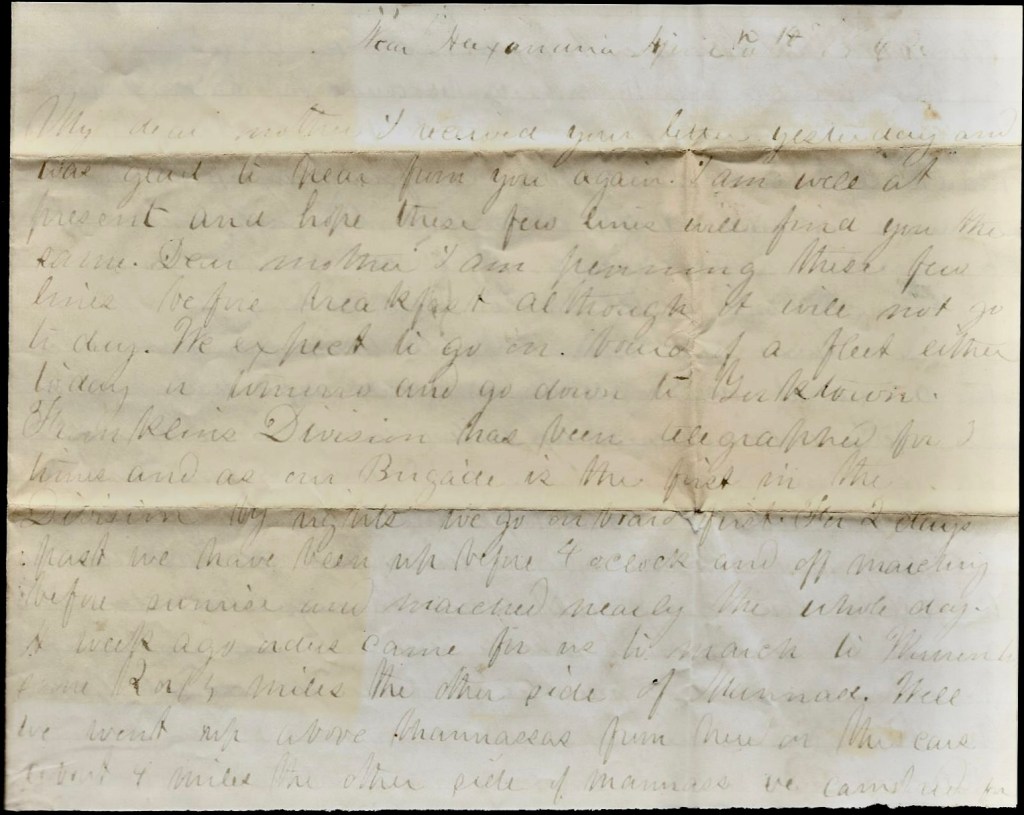 Near Alexandria 14
My dear mother I received your letter yesterday and
was glad to hear from you again. I am well at
present and hope these few lines will find you the
same. Dear mother I am penning these few
lines before breakfast although it will not go
to day. We expect to go on board of a fleet either
today or tomorro and go down to Yorktown.
Franklins Division has been telegraphed for 3
times and as our Brigade is the first in the
Division by rights we go on board first. For 2 days
past we have been up before 4 oclock and off marching
before sunrise and marched nearly the whole day.
A week ago orders came for us to march to
some miles the other side of Mannass. Well
we went up above Mannassas from here on the cars
about 4 miles the other side of mannass we